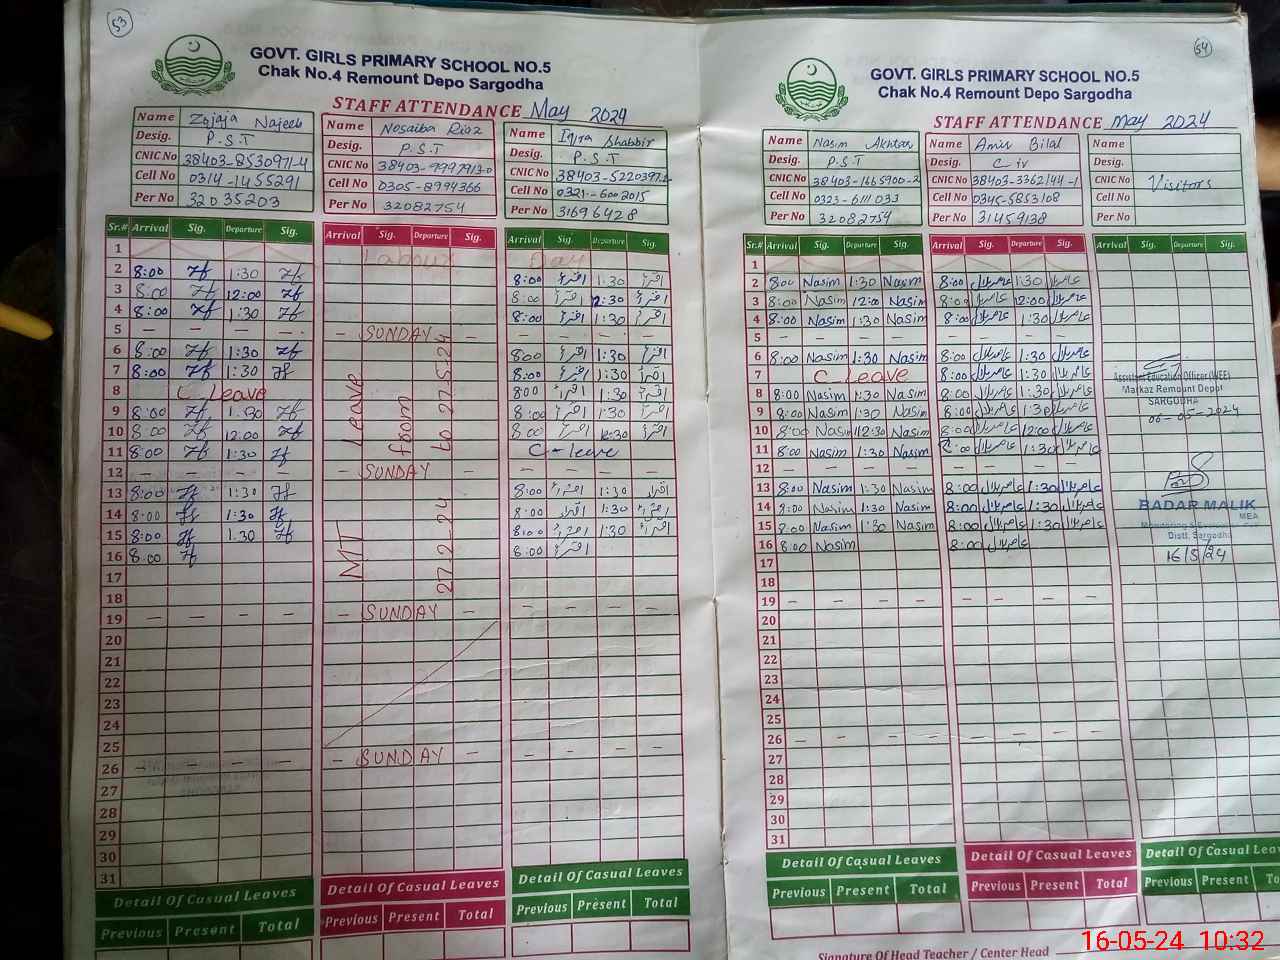 53
GOVT. GIRLS PRIMARY SCHOOL NO.5
Chak No.4 Remount Depo Sargodha
STAFF ATTENDANCE May 2024
Name Zojaja Najeeb
Desig. P.S.T
CNIC No 38403-8530971-4
Cell No 0314-1455291
Per No 32035203
Name Nosaiba Riaz
Desig. P.S.T
CNIC No 38403-9997913-0
Cell No 0305-8994366
Per No 32082754
Name Iqra Shabbir
Desig. P.S.T
CNIC No 38403-5220397-
Cell No 0321-6002015
Per No 31696428
Sr.# Arrival Sig. Departure Sig. Arrival Sig. Departure Sig. Arrival Sig. Departure Sig.
1 Labour Day
2 8:00 1:30 8:00 اقرأ 1:30 اقرأ
3 8:00 12:00 8:00 اقرأ 12:30 اقرأ
4 8:00 1:30 8:00 اقرأ 1:30 اقرأ
5 — — — — — SUNDAY — — — — —
6 8:00 1:30 800 اقرأ 1:30 اقرأ
7 8:00 1:30 8:00 اقرأ 1:30 اقرأ
8 C Leave 800 اقرأ 1:30 اقرأ
9 8:00 1:30 8:00 اقرأ 1:30 اقرأ
10 8:00 12:00 8:00 اقرأ 12:30 اقرأ
11 8:00 1:30 C-leave
12 — — — — — SUNDAY — — — — —
13 8:00 1:30 8:00 اقرأ 1:30 اقرأ
14 8:00 1:30 8:00 اقرأ 1:30 اقرأ
15 8:00 1:30 8:00 اقرأ 1:30 اقرأ
16 8:00 8:00 اقرأ
17
18
19 — — — — — SUNDAY — — — — —
20
21
22
23
24
25
26 — — — — — SUNDAY — — — — —
27
28
29
30
31
MT Leave
from
27.2.24 to 27.5.24
Detail Of Casual Leaves Detail Of Casual Leaves Detail Of Casual Leaves
Previous Present Total Previous Present Total Previous Present Total
54
GOVT. GIRLS PRIMARY SCHOOL NO.5
Chak No.4 Remount Depo Sargodha
STAFF ATTENDANCE May 2024
Name Nasim Akhtar
Desig. P.S.T
CNIC No 38403-1665900-2
Cell No 0323-6111033
Per No 32082754
Name Amir Bilal
Desig. C iv
CNIC No 38403-3362144-1
Cell No 0345-5853108
Per No 31459138
Name
Desig.
CNIC No
Cell No
Per No
Visitors
Sr.# Arrival Sig. Departure Sig. Arrival Sig. Departure Sig. Arrival Sig. Departure Sig.
1
2 8:00 Nasim 1:30 Nasim 8:00 عامر بلال 1:30 عامر بلال
3 8:00 Nasim 12:00 Nasim 8:00 عامر بلال 12:00 عامر بلال
4 8:00 Nasim 1:30 Nasim 8:00 عامر بلال 1:30 عامر بلال
5 — — — — — — — —
6 8:00 Nasim 1:30 Nasim 8:00 عامر بلال 1:30 عامر بلال
7 C Leave 8:00 عامر بلال 1:30 عامر بلال
8 8:00 Nasim 1:30 Nasim 8:00 عامر بلال 1:30 عامر بلال
9 8:00 Nasim 1:30 Nasim 8:00 عامر بلال 1:30 عامر بلال
10 8:00 Nasim 12:30 Nasim 8:00 عامر بلال 12:00 عامر بلال
11 8:00 Nasim 1:30 Nasim 8:00 عامر بلال 1:30 عامر بلال
12 — — — — — — — —
13 8:00 Nasim 1:30 Nasim 8:00 عامر بلال 1:30 عامر بلال
14 8:00 Nasim 1:30 Nasim 8:00 عامر بلال 1:30 عامر بلال
15 8:00 Nasim 1:30 Nasim 8:00 عامر بلال 1:30 عامر بلال
16 8:00 Nasim 8:00 عامر بلال
17
18
19 — — — — — — — —
20
21
22
23
24
25
26 — — — — — — — —
27
28
29
30
31
Assistant Education Officer (WEE)
Markaz Remount Depot
SARGODHA
06-05-2024
BADAR MALIK
MEA
Distt. Sargodha
16/5/24
Detail Of Casual Leaves Detail Of Casual Leaves Detail Of Casual Leav
Previous Present Total Previous Present Total Previous Present
Signature Of Head Teacher / Center Head
16-05-24 10:32